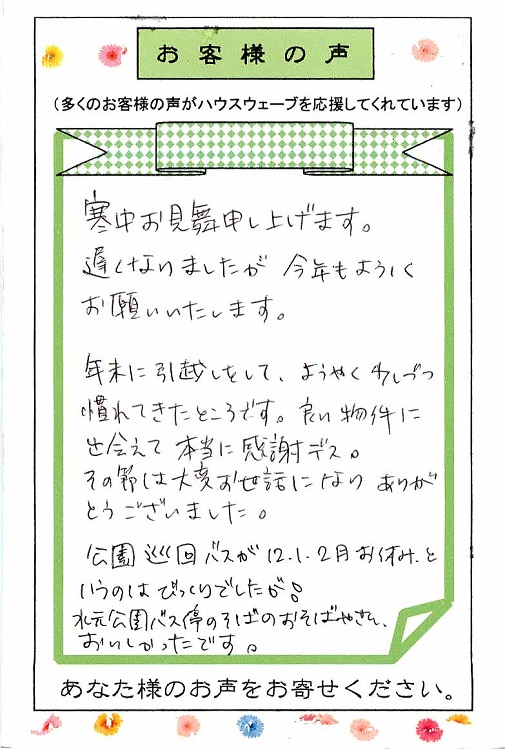 お客様の声
(多くのお客様の声がハウスウェーブを応援してくれています)
寒中お見舞申し上げます。
遅くなりましたが 今年もよろしく
お願いいたします。
年末に引越しをして、ようやく少しづつ
慣れてきたところです。良い物件に
出会えて 本当に感謝デス。
その節は大変お世話になり ありが
とうございました。
公園 巡回バスが 12.1.2月お休み と
いうのは びっくりでしたが!
水元公園バス停のそばのおそばやさん、
おいしかったです。
あなた様のお声をお寄せください。